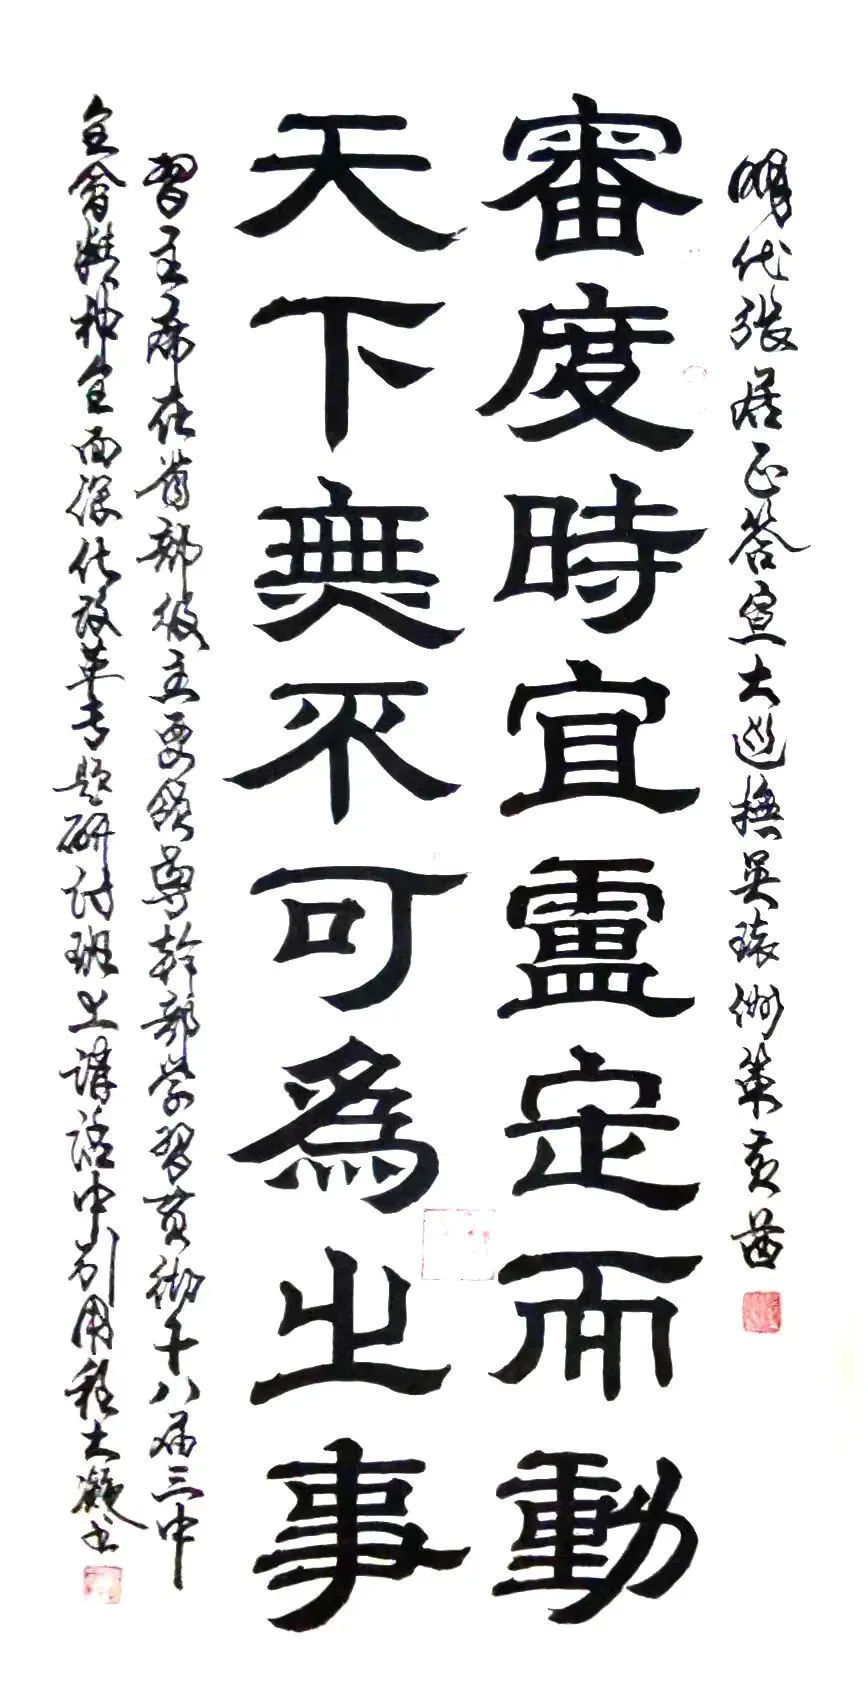 明代張居正答宣大巡撫吴環洲策黄酋
審度時宜慮定而動
天下無不可為之事
習主席在省部級主要領導幹部学習貫彻十八届三中
全會精神全面深化改革专題研討班上講話中引用程大凝书